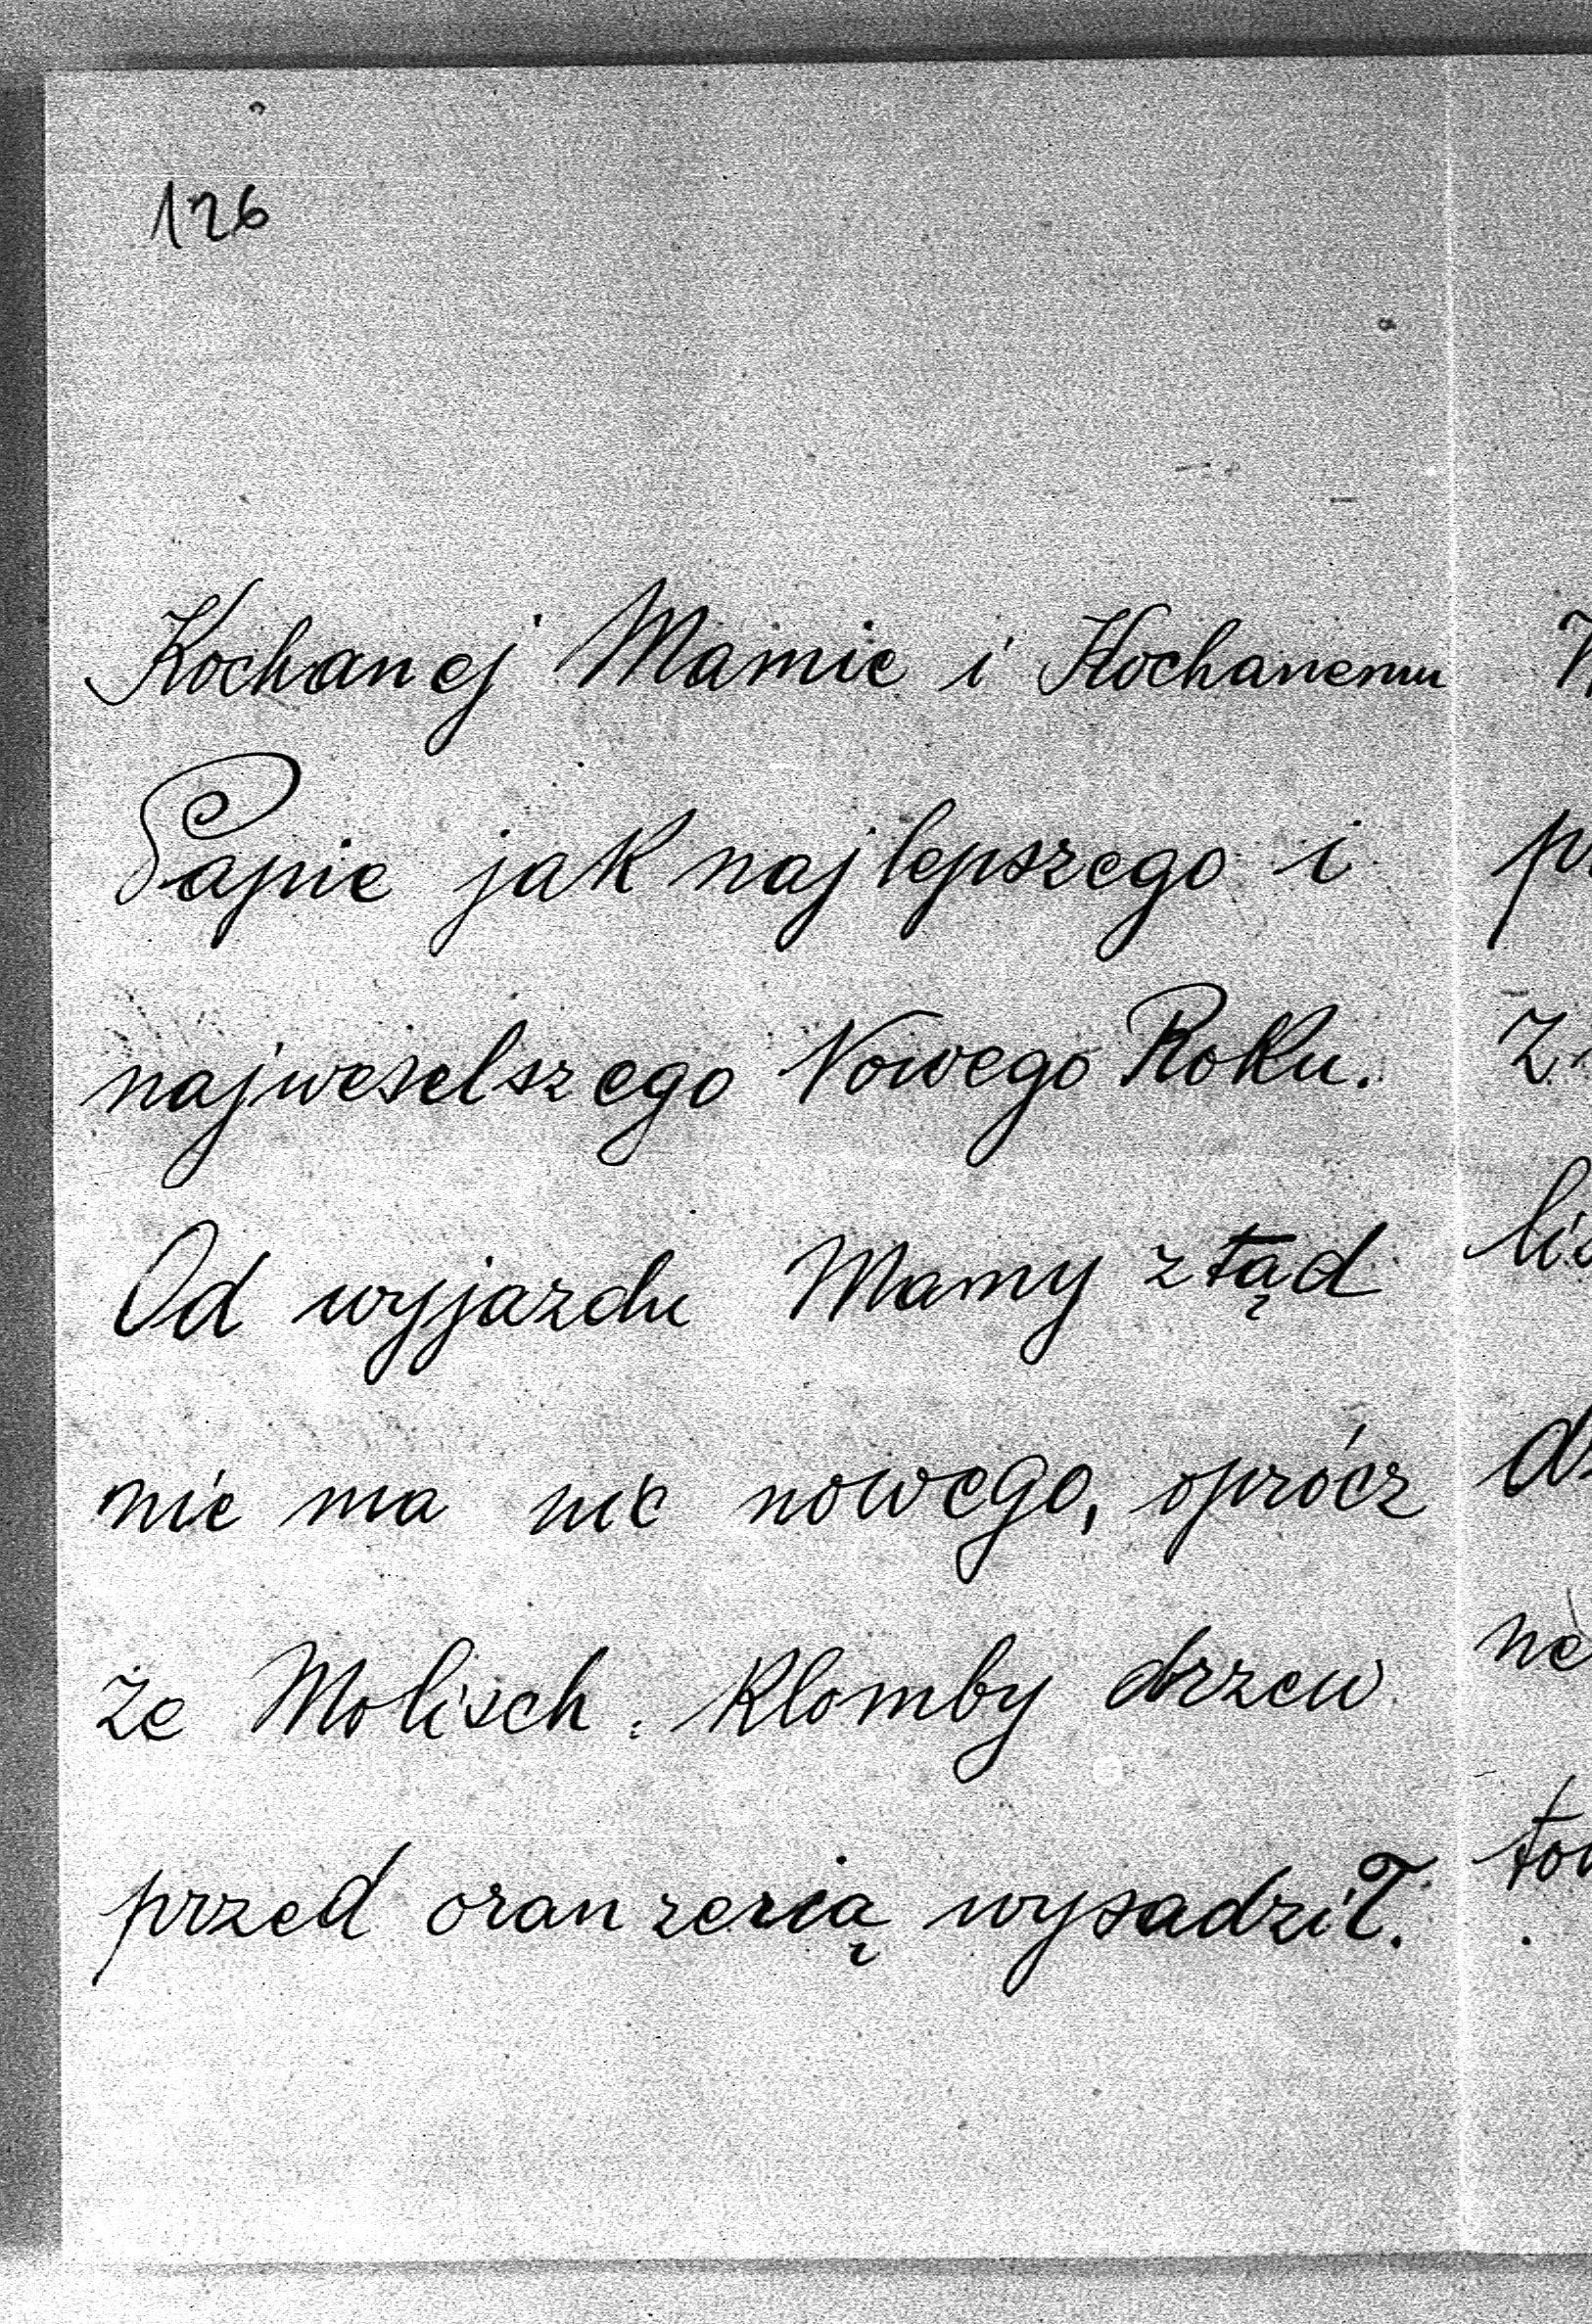 126
Kochanej Mamie i Kochanemu
Papie jak najlepszego i
najweselszego Nowego Roku.
Od wyjazdu Mamy ztąd
nie ma nic nowego, oprócz
że Molisch. Klomby drzew
przed oranzerią wysadził.